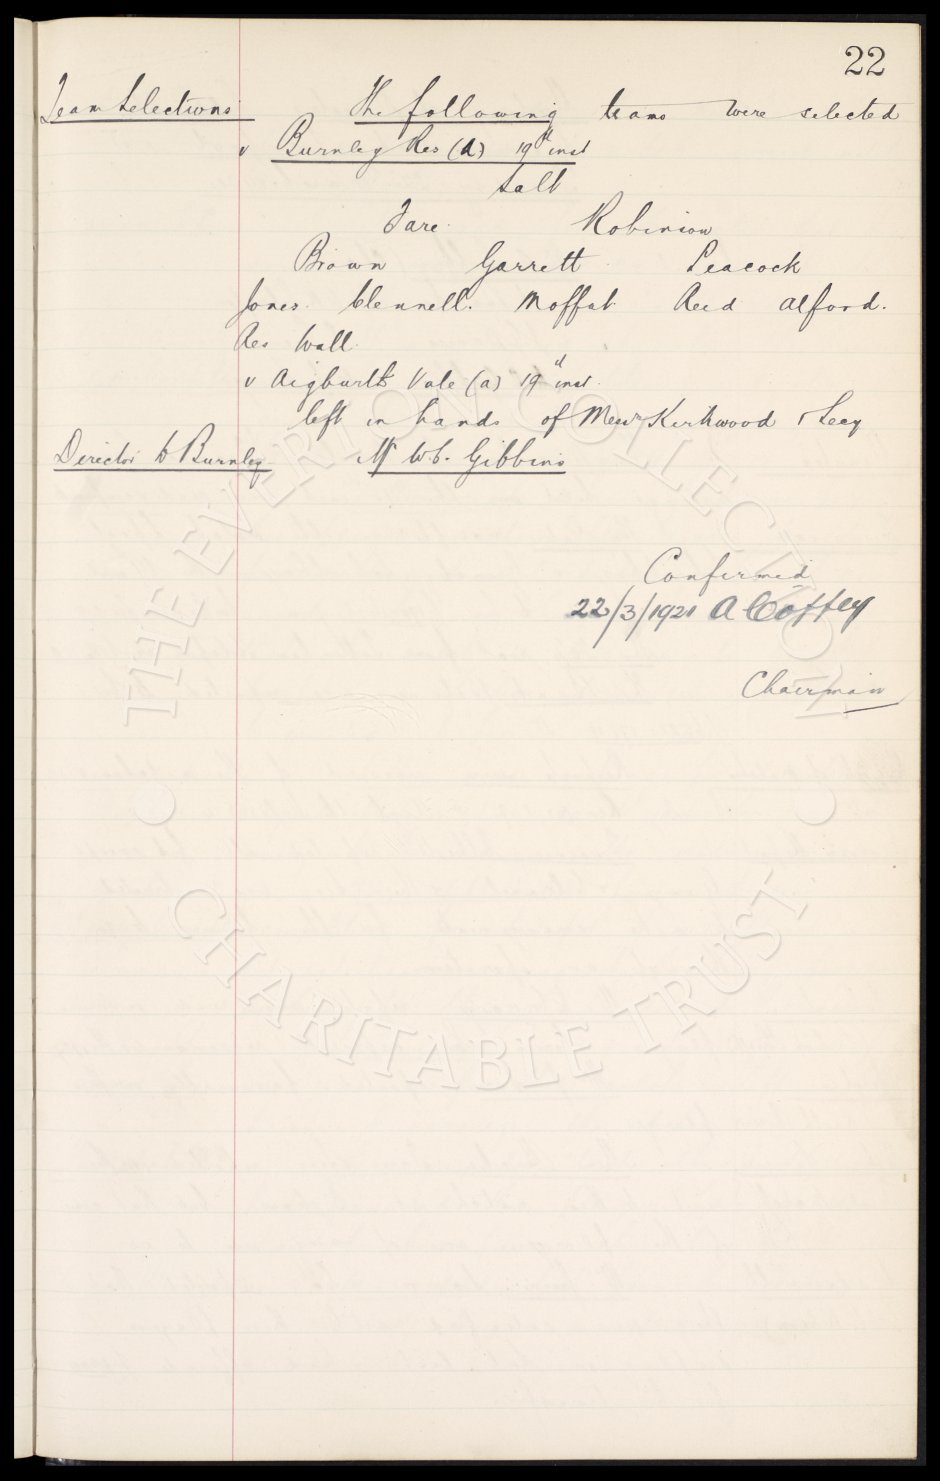 22
Team Selections The following teams were selected
v Burnley Res (A) 19th inst
Salt
Fare. Robinson
Brown Garrett Peacock
Jones. Clennell. Moffat Reed Alford.
Res Wall.
v Aigburth Vale (a) 19th inst.
left in hands of Messrs Kirkwood &
Director to Burnley Mr W.C. Gibbins
Confirmed
22/3/1921 A Coffey
Chairman
THE EVERTON COLLECTION
CHARITABLE TRUST